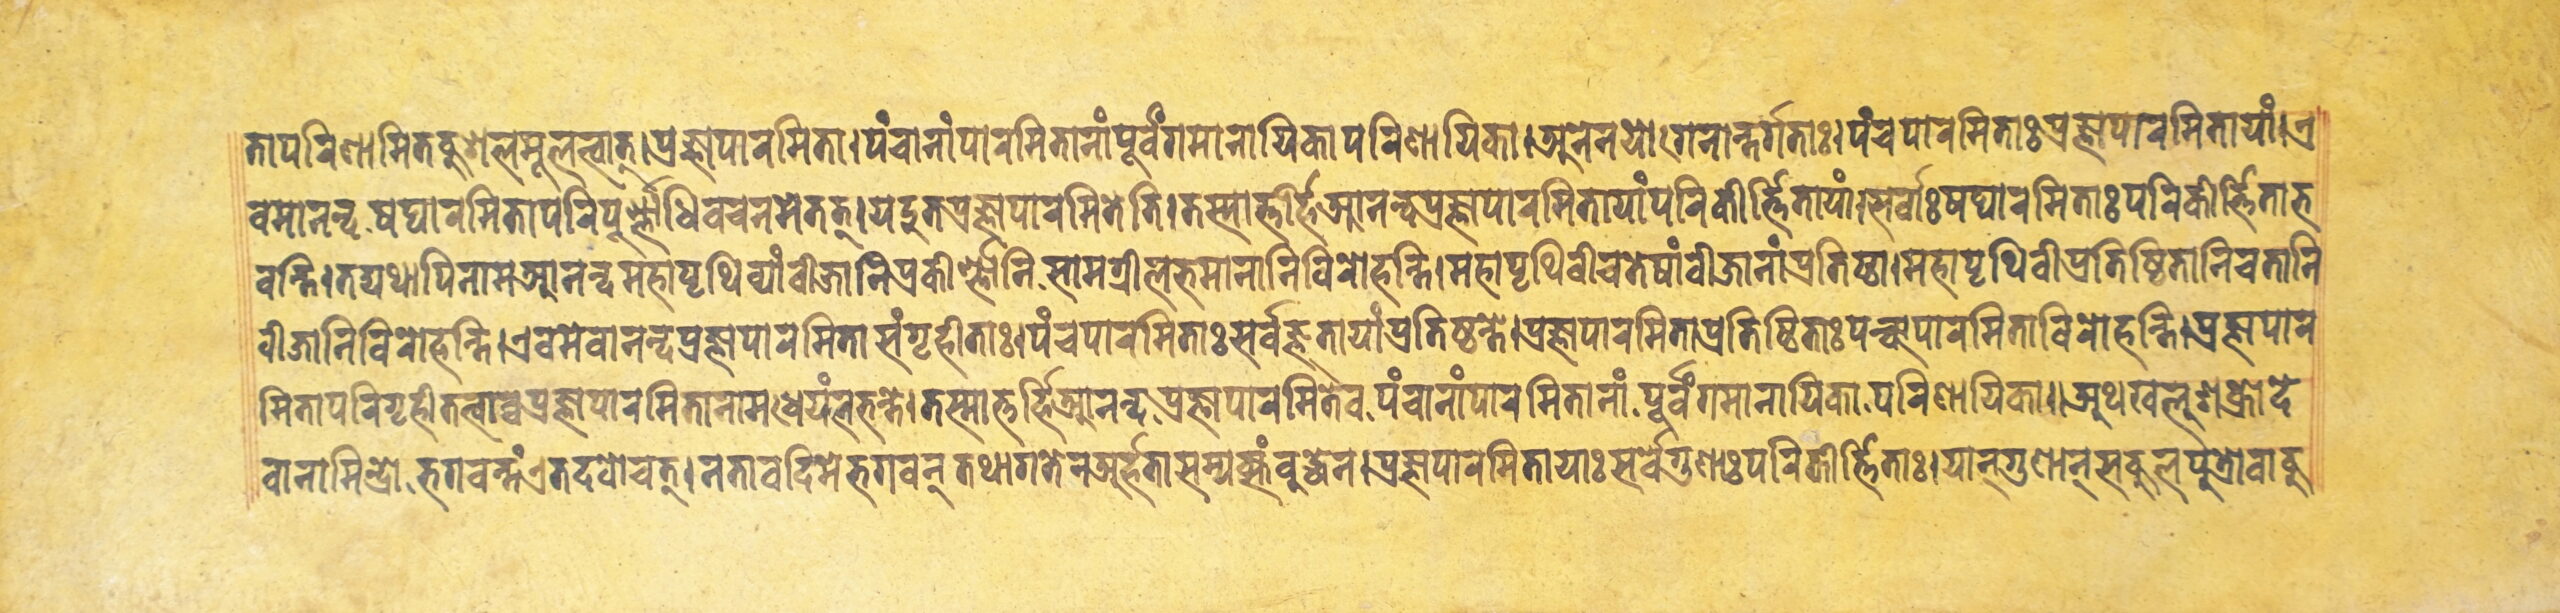 तापरिणामितकुशलमूलत्वात्।प्रज्ञापारमिता।पंचानांपारमितानांपूर्वंगमानायिकापरिणायिका।अनेनयोगेनान्तर्गताः।पंचपारमिताःप्रज्ञापारमितायां।ए
वमानन्द,षट्पारमितापरिपूर्ण्णाधिवचनमेतत्।यदुतप्रज्ञापारमितेति।तस्मात्तर्हिआनन्दप्रज्ञापारमितायांपरिकीर्त्तितायां।सर्वाःषट्पारमिताःपरिकीर्त्तिताभ
वन्ति।तद्यथापिनामआनन्दमहापृथिव्यांवीजानिप्रकीर्ण्णानिसामग्रीलभमानानिविरोहन्ति।महापृथिवीचतेषांवीजानांप्रतिष्ठा।महापृथिवीप्रतिष्ठितानिचतानि
वीजानिविरोहन्ति।एवमेवानन्दप्रज्ञापारमितासंगृहीताः।पंचपारमिताःसर्वज्ञतायांप्रतिष्ठन्ते।प्रज्ञापारमिताप्रतिष्ठिताःपञ्चपारमिताविरोहन्ति।प्रज्ञापार
मितापरिगृहीतत्वाच्चप्रज्ञापारमितानामधेयंलभन्ते।तस्मात्तर्हिआनन्द,प्रज्ञापारमितैव,पंचानांपारमितानां,पूर्वंगमानायिका,परिणायिका॥अथखलुशक्रोदे
वानामिन्द्रो,भगवन्तंएतदवोचत्।नतावदिमेभगवन्तथागतेनअर्हतासम्यक्संवुद्धेन।प्रज्ञापारमितायाःसर्वेगुणाःपरिकीर्त्तिताः।यान्गुणान्सकुलपुत्रोवाकु